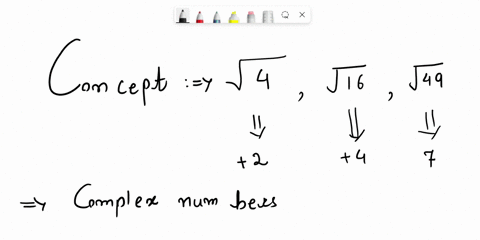 Concept :=> √4 , √16 , √49
⇓ ⇓ ⇓
+2 +4 7
=> Complex numbers